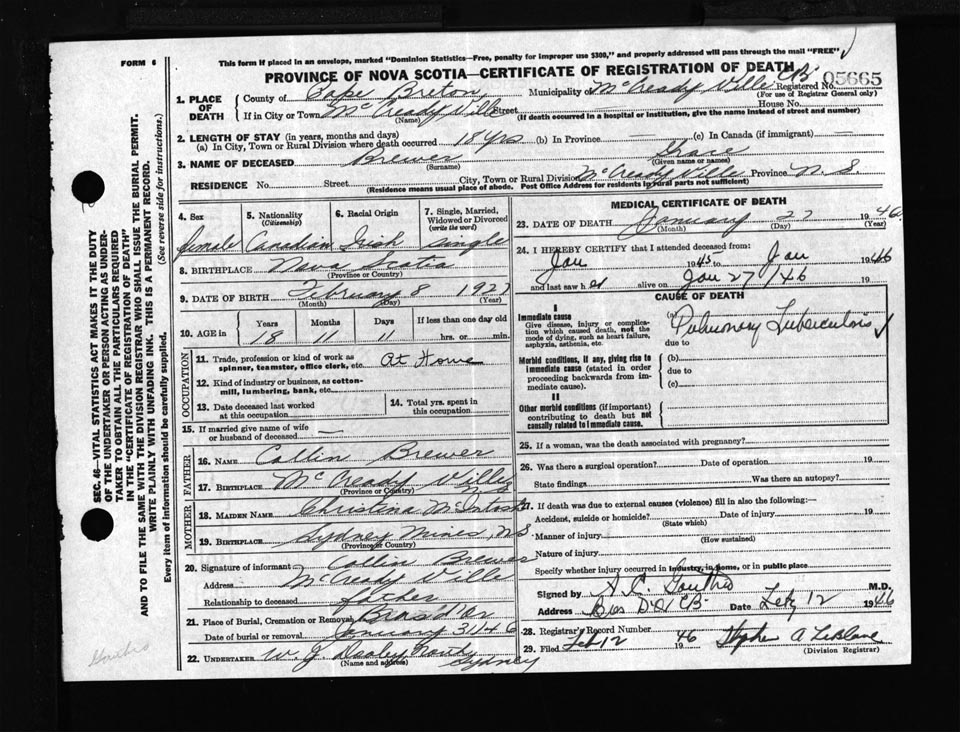 FORM 6
This form if placed in an envelope, marked "Dominion Statistics—Free, penalty for improper use $300," and properly addressed will pass through the mail "FREE"
PROVINCE OF NOVA SCOTIA—CERTIFICATE OF REGISTRATION OF DEATH
Registered No. 05665
(For use of Registrar General only)
1. PLACE OF DEATH
County of Cape Breton, Municipality of McCready Ville CB.
If in City or Town McCready Ville Street House No.
(Name) (If death occurred in a hospital or institution, give the name instead of street and number)
2. LENGTH OF STAY (in years, months and days)
(a) In City, Town or Rural Division where death occurred 18 Yrs (b) In Province — (c) In Canada (if immigrant) —
3. NAME OF DECEASED Brewer Grace
(Surname) (Given name or names)
RESIDENCE No. Street City, Town or Rural Division McCready Ville Province N. S.
(Residence means usual place of abode. Post Office Address for residents in rural parts not sufficient)
4. Sex female
5. Nationality (Citizenship) Canadian
6. Racial Origin Irish
7. Single, Married, Widowed or Divorced (write the word) single
8. BIRTHPLACE Nova Scotia
(Province or Country)
9. DATE OF BIRTH February 8 1927
(Month) (Day) (Year)
10. AGE in Years Months Days If less than one day old
18 11 11 hrs. or min.
OCCUPATION
11. Trade, profession or kind of work as spinner, teamster, office clerk, etc. At Home
12. Kind of industry or business, as cotton-mill, lumbering, bank, etc.
13. Date deceased last worked at this occupation
14. Total yrs. spent in this occupation
15. If married give name of wife or husband of deceased —
FATHER
16. NAME Collin Brewer
17. BIRTHPLACE McCready Ville
(Province or Country)
MOTHER
18. MAIDEN NAME Christena McIntosh
19. BIRTHPLACE Sydney Mines, N S
(Province or Country)
20. Signature of informant Collin Brewer
Address McCready Ville
Relationship to deceased father
21. Place of Burial, Cremation or Removal
Date of burial or removal January 31 46
22. UNDERTAKER W. J. Dooley
Sydney
(Name and address)
MEDICAL CERTIFICATE OF DEATH
23. DATE OF DEATH January 27 1946
(Month) (Day)
24. I HEREBY CERTIFY that I attended deceased from:
Jan 1945 to Jan 1946
and last saw her alive on Jan 27/46 19
CAUSE OF DEATH
I
Immediate cause
Give disease, injury or complication which caused death, not the mode of dying, such as heart failure, asphyxia, asthenia, etc.
(a) Pulmonary Tuberculosis
due to
Morbid conditions, if any, giving rise to immediate cause (stated in order proceeding backwards from immediate cause).
(b)
due to
(c)
II
Other morbid conditions (if important) contributing to death but not causally related to immediate cause.
25. If a woman, was the death associated with pregnancy?
26. Was there a surgical operation? Date of operation 19
State findings Was there an autopsy?
27. If death was due to external causes (violence) fill in also the following:—
Accident, suicide or homicide? Date of injury 19
(State which)
Manner of injury
(How sustained)
Nature of injury
Specify whether injury occurred in industry, in home, or in public place
Signed by M.D.
Address Date Feby 12 1946
28. Registrar's Record Number
29. Filed Feb 12 19 46 Stephen A LeBlanc
(Division Registrar)
SEC. 46—VITAL STATISTICS ACT MAKES IT THE DUTY
OF THE UNDERTAKER OR PERSON ACTING AS UNDER-
TAKER TO OBTAIN ALL THE PARTICULARS REQUIRED
IN THE "CERTIFICATE OF REGISTRATION OF DEATH"
AND TO FILE THE SAME WITH THE DIVISION REGISTRAR WHO SHALL ISSUE THE BURIAL PERMIT.
WRITE PLAINLY WITH UNFADING INK. THIS IS A PERMANENT RECORD.
Every item of information should be carefully supplied. (See reverse side for instructions.)